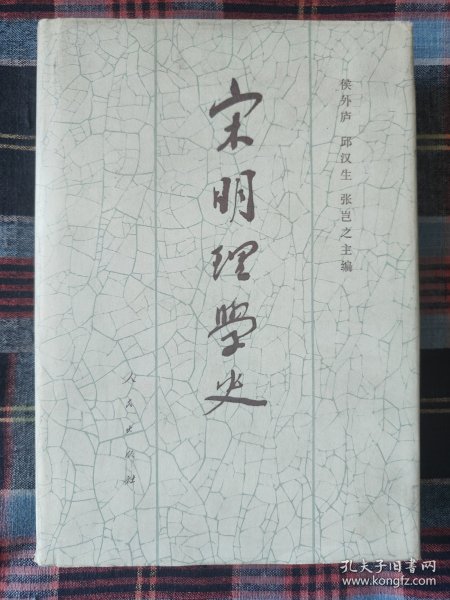 侯外庐 邱汉生 张岂之主编
宋明理學史
人民出版社
孔夫子旧书网
www.kongfz.com